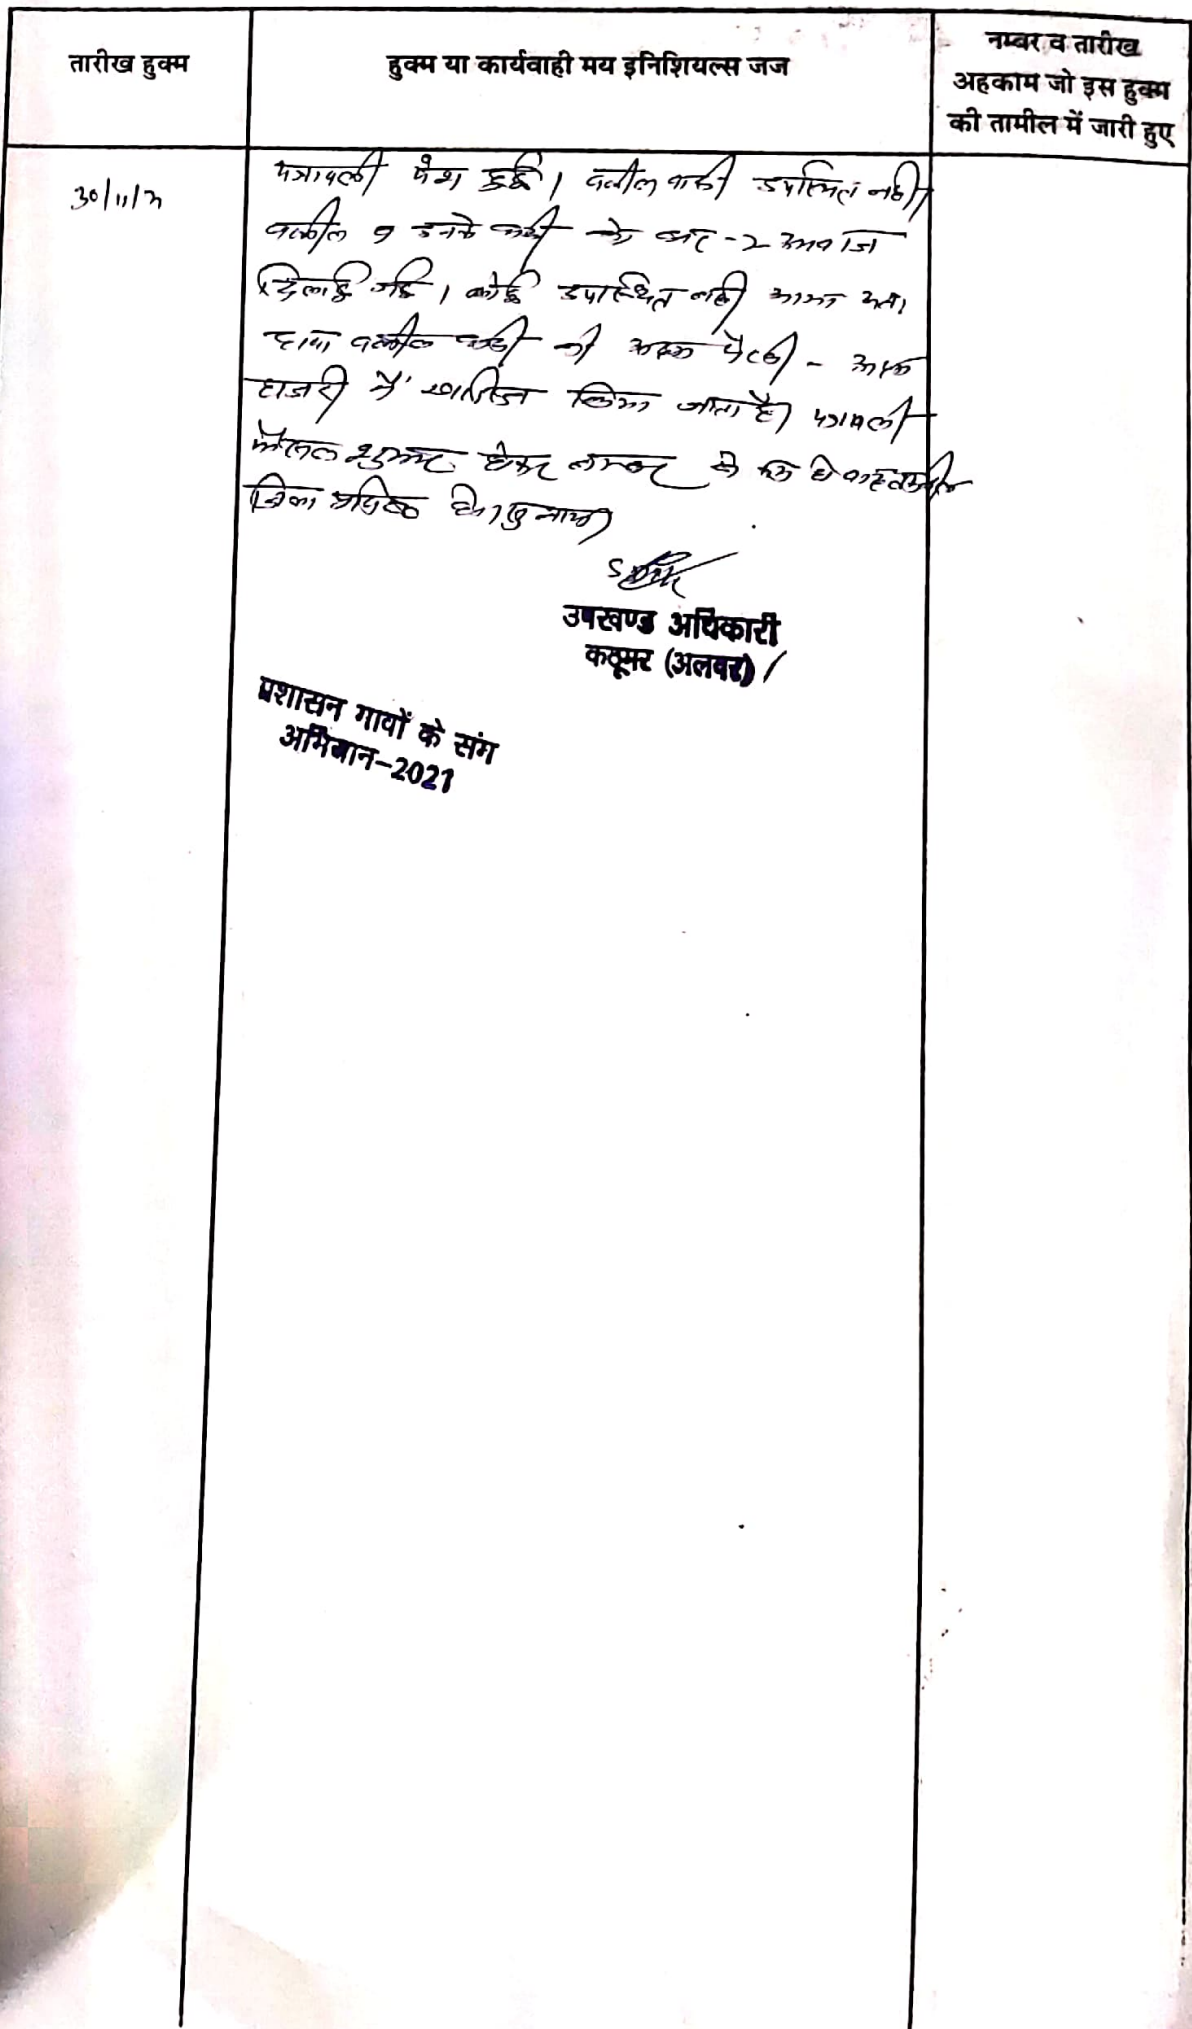 तारीख हुक्म
हुक्म या कार्यवाही मय इनिशियल्स जज
नम्बर व तारीख
अहकाम जो इस हुक्म
की तामील में जारी हुए
30/11/21
पत्रावली पेश हुई। वकील वादी उपस्थित नही।
वकील व उनके वादी को बार-2 आवाज
दिलाई गई। कोई उपस्थित नही आया अतः
दावा वकील वादी की अदम पैरवी - अदम
हाजरी में खारिज किया जाता है। पत्रावली
फैसल शुमार होकर नम्बर से कम हो बाद तकमील
दाखिल दफ्तर हो।
उपखण्ड अधिकारी
कठूमर (अलवर)
प्रशासन गावों के संग
अभियान-2021